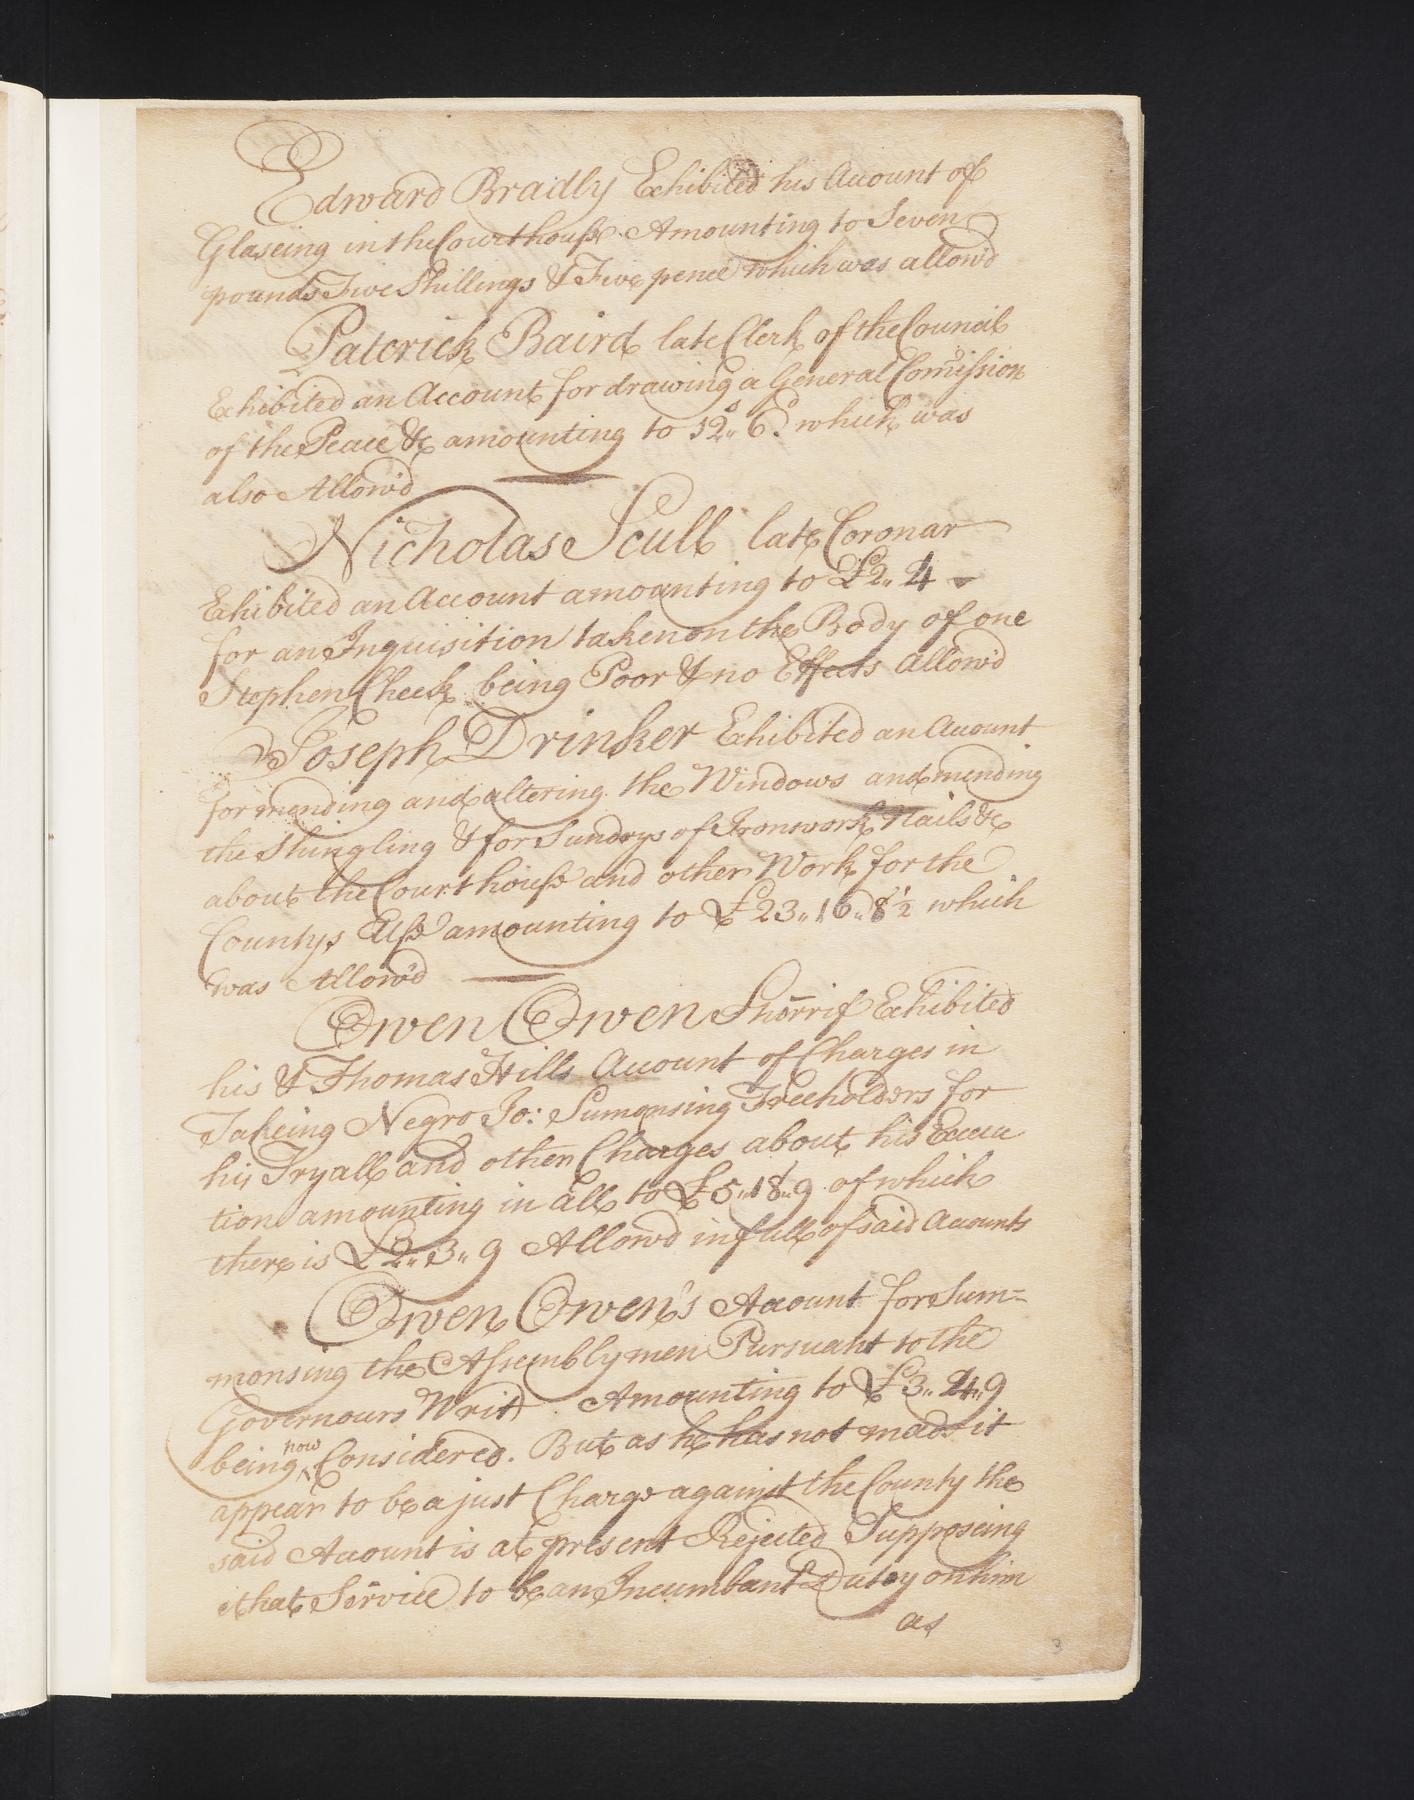 Edward Bradly Exhibited his Acount of
Glaseing in the Courthouse Amounting to Seven
pounds Five Shillings & Five pence which was allow'd
Patrick Baird late Clerk of the Council
Exhibited an Account for drawing a General Comission
of the Peace &c amounting to 12s,, 6d. which was
also Allow'd
Nicholas Scull late Coronar
Exhibited an Account amounting to £2,, 4 -
for an Inquisition taken on the Body of one
Stephen Cheek being Poor & no Effects Allow'd
Joseph Drinker Exhibited an Acount
for mending and altering the Windows and mending
the Shingling & for Sundrys of Ironwork Nails &c
about the Courthouse and other Work for the
Countys Use amounting to £23,, 16,, 8 1/2 which
was Allow'd
Owen Owen Sherrif Exhibited
his & Thomas Hills Acount of Charges in
Takeing Negro Jo: Sumonsing Freeholders for
his Tryall and other Charges about his Execu
tion amounting in all to £5,, 18,, 9 of which
there is £2,, 3,, 9 Allow'd in full of said Acounts
Owen Owen's Acount for Sum=
monsing the Assemblymen Pursuant to the
Governours Writ Amounting to £3,, 24,, 9
being now Considered. But as he has not made it
appear to be a just Charge against the County the
said Acount is at present Rejected Supposeing
that Service to be an Incumbant Duty on him
as
3